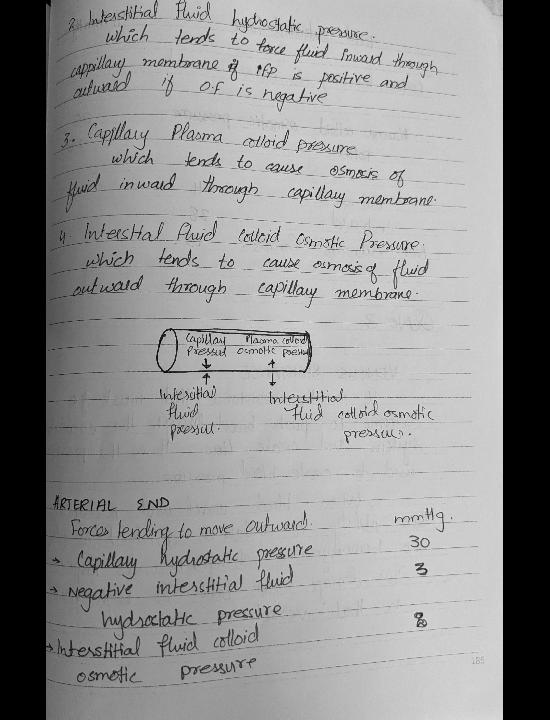 2. Interstitial fluid hydrostatic pressure.
which tends to force fluid inward through
cappillary membrane if ifp is positive and
outward if O.F is negative
3. Capillary Plasma colloid pressure
which tends to cause osmosis of
fluid inward through capillary membrane.
4. Interstitial fluid colloid osmotic Pressure.
which tends to cause osmosis of fluid
outward through capillary membrane.
Capillary Plasma colloid
Pressure osmotic pressure
Interstitial Interstitial
fluid fluid colloid osmotic
pressure. pressure.
ARTERIAL END
Forces tending to move outward. mmHg.
→ Capillary hydrostatic pressure 30
→ Negative interstitial fluid 3
hydrostatic pressure
→ Interstitial fluid colloid 8
osmotic pressure
185